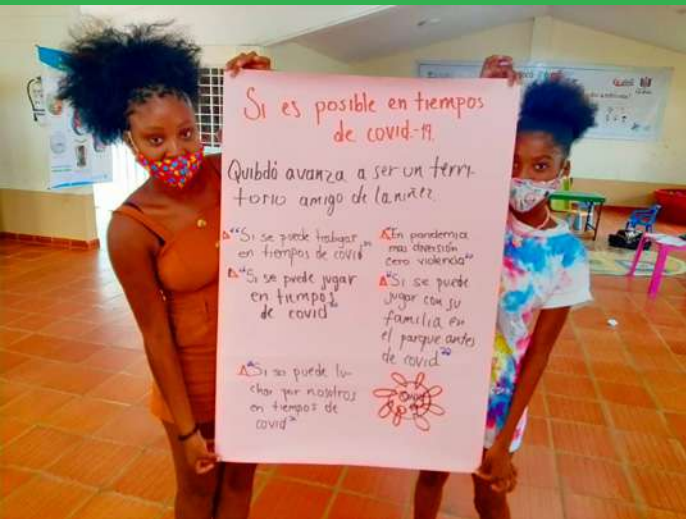 Si es posible en tiempos
de covid-19.
Quibdó avanza a ser un terri-
torio amigo de la niñez.
"Si se puede trabajar
en tiempos de covid"
"Si se puede jugar
en tiempos
de covid"
"Si se puede lu-
char por nosotros
en tiempos de
covid"
"En pandemia
mas diversión
cero violencia"
"Si se puede
jugar con su
familia en
el parque antes
de covid"